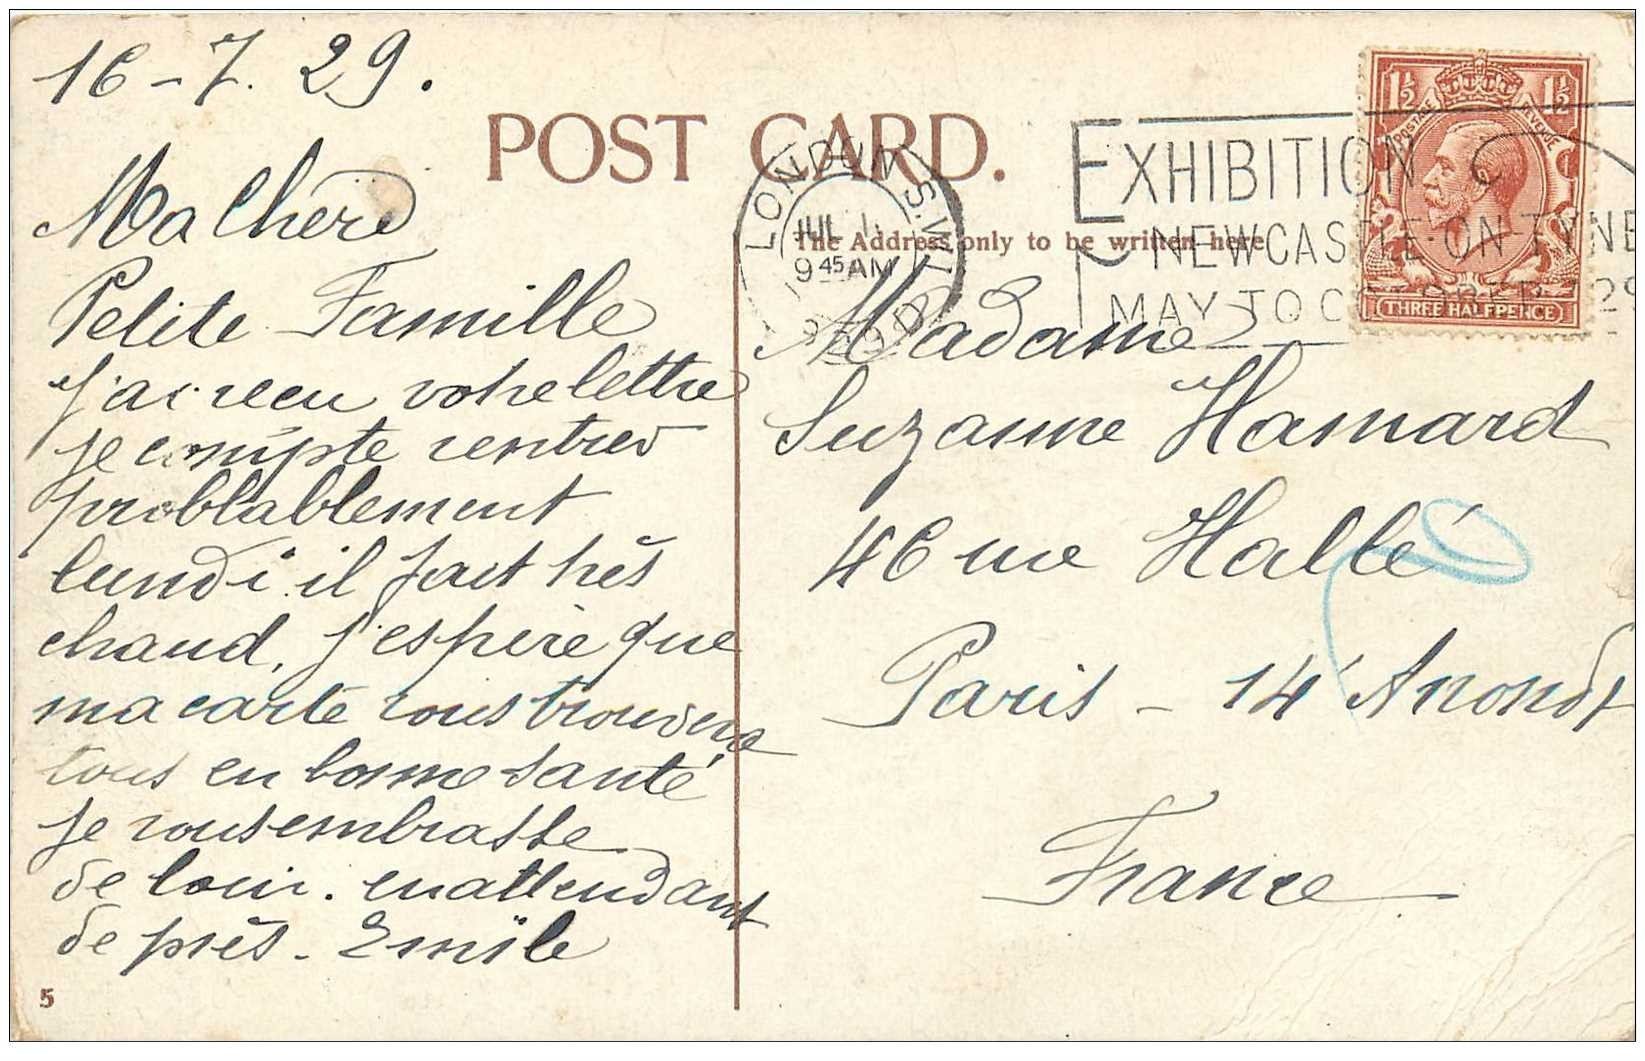 16-7.29.
POST CARD.
Ma Chère
Petite Famille
j'ai recu votre lettre
je compte rentrer
problablement
lundi. il fait très
chaud, j'espère que
ma carte vous trouvera
tous en bonne santé
je vous embrasse
de loin. en attendant
de près. Emile
5
LONDON S.W.1
JUL 1
9 45 AM
EXHIBITION
NEWCASTLE-ON-TYNE
MAY TO OCTOBER 29
1½ 1½
POSTAGE REVENUE
THREE HALFPENCE
The Address only to be written here
Madame
Suzanne Hamard
46 rue Hallé
Paris - 14 Arrondt
France